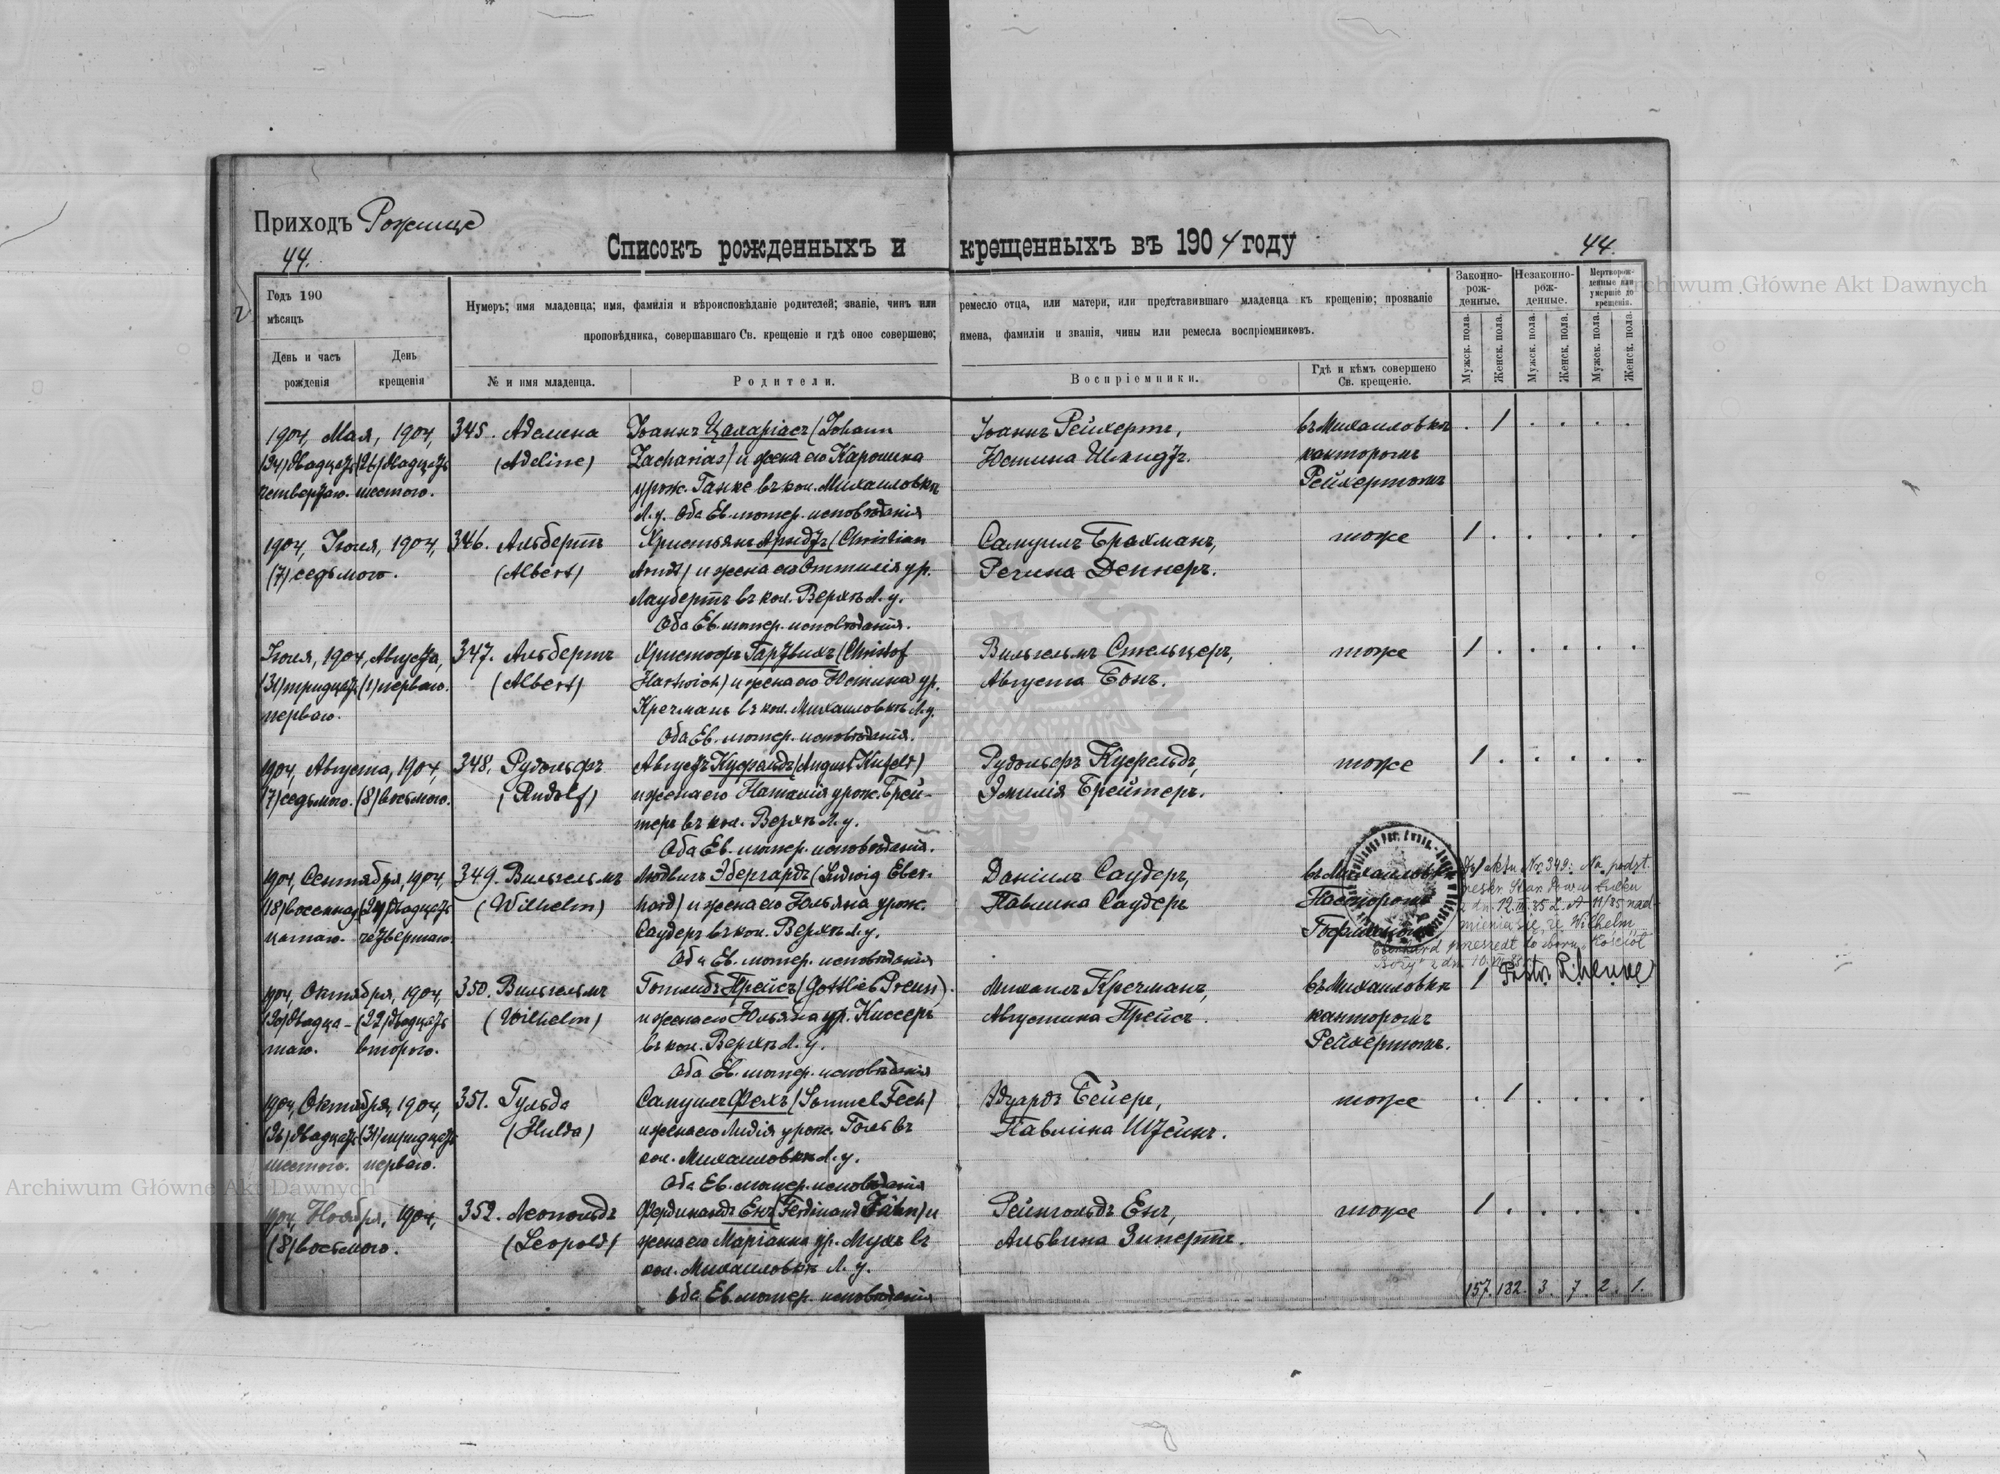 Приходъ Рожище
44.
Списокъ рожденныхъ и крещенныхъ въ 1904 году
44.
Годъ 190
мѣсяцъ
День и часъ рожденія
День крещенія
Нумеръ; имя младенца; имя, фамилія и вѣроисповѣданіе родителей; званіе, чинъ или ремесло отца, или матери, или представившаго младенца къ крещенію; прозваніе
проповѣдника, совершавшаго Св. крещеніе и гдѣ оное совершено; имена, фамиліи и званія, чины или ремесла воспріемниковъ.
№ и имя младенца.
Родители.
Воспріемники.
Гдѣ и кѣмъ совершено Св. крещеніе.
Законно-рож-денные.
Незаконно-рож-денные.
Мертворож-денные или умершіе до крещенія.
Мужск. пола.
Женск. пола.
Мужск. пола.
Женск. пола.
Мужск. пола.
Женск. пола.
1904, Мая, 1904,
(24) двадцать (26) двадцать
четвертаго. шестого.
345. Аделина
(Adeline)
Іоаннъ Цахаріасъ (Johann
Zacharias) и жена его Каролина
урож. Ганке въ кол. Михаиловкѣ
Л. у. Оба Ев. лютер. исповѣданія
Іоаннъ Рейхертъ,
Юстина Шмидтъ.
въ Михаиловкѣ
канторомъ
Рейхертомъ
1
1904, Іюля, 1904,
(7) седьмого.
346. Альбертъ
(Albert)
Христьянъ Арндтъ (Christian
Arndt) и жена его Оттилія ур.
Лаубертъ въ кол. Верхѣ Л. у.
Оба Ев. лютер. исповѣданія.
Самуилъ Брахманъ,
Регина Деннеръ.
тоже
1
Іюля, 1904, Августа,
(31) тридцать (1) перваго.
перваго.
347. Альбертъ
(Albert)
Христофъ Гартвихъ (Christof
Hartwich) и жена его Юстина ур.
Кречманъ въ кол. Михаиловкѣ Л. у.
Оба Ев. лютер. исповѣданія.
Вильгельмъ Стельцеръ,
Августа Бонъ.
тоже
1
1904, Августа, 1904,
(7) седьмого. (8) восьмого.
348. Рудольфъ
(Rudolf)
Августъ Куфельдъ (August Kufeld)
и жена его Наталія урож. Брей-
теръ въ кол. Верхѣ Л. у.
Оба Ев. лютер. исповѣданія.
Рудольфъ Куфельдъ,
Эмилія Брейтеръ.
тоже
1
1904, Сентября, 1904,
(18) восемнад- (24) двадцать
цатаго. четвертаго.
349. Вильгельмъ
(Wilhelm)
Людвигъ Эбергардъ (Ludwig Eber-
hard) и жена его Юльяна урож.
Саудеръ въ кол. Верхѣ Л. у.
Оба Ев. лютер. исповѣданія
Даніилъ Саудеръ,
Павлина Саудеръ
въ Михаиловкѣ
Пасторомъ
1
Do aktu No 349: Na podst.
z dn. 12. III. 85 L. A 11/85 nad-
mienia się, że Wilhelm
Eberhard przeszedł do zboru "Kościół
Boży" z dn.
Pastor
1904, Октября, 1904,
(20) двадца- (22) двадцать
таго. второго.
350. Вильгельмъ
(Wilhelm)
Готлибъ Прейсъ (Gottlieb Preuss)
и жена его Юльяна ур. Киссеръ
въ кол. Верхѣ Л. у.
Оба Ев. лютер. исповѣданія
Михаилъ Кречманъ,
Августина Прейсъ.
въ Михаиловкѣ
канторомъ
Рейхертомъ.
1
1904, Октября, 1904,
(26) двадцать (31) тридцать
шестого. перваго.
351. Гульда
(Hulda)
Самуилъ Фехъ (Samuel Fech)
и жена его Лидія урож. Гольъ въ
кол. Михаиловкѣ Л. у.
Оба Ев. лютер. исповѣданія
Эдуардъ Бейеръ,
Павлина Штейнъ.
тоже
1
1904, Ноября, 1904,
(8) восьмого.
352. Леопольдъ
(Leopold)
Фердинандъ Енъ (Ferdinand Jähn) и
жена его Маріанна ур. Мухъ въ
кол. Михаиловкѣ Л. у.
Оба Ев. лютер. исповѣданія
Рейнгольдъ Енъ,
Альвина Зипертъ.
тоже
1
157. 182. 3. 7. 2. 1.
Archiwum Główne Akt Dawnych
Archiwum Główne Akt Dawnych